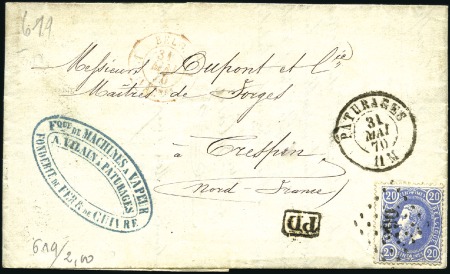 619
Messieurs Dupont et Cie
Maîtres de Forges
à Crespin
(Nord-France)
PATURAGES
31
MAI
70
11 M
31
MAI
70
Fque DE MACHINES A VAPEUR
A. VILAIN A PATURAGES
FONDERIE DE FER & DE CUIVRE
PD
20 20
20 20
619/2,00